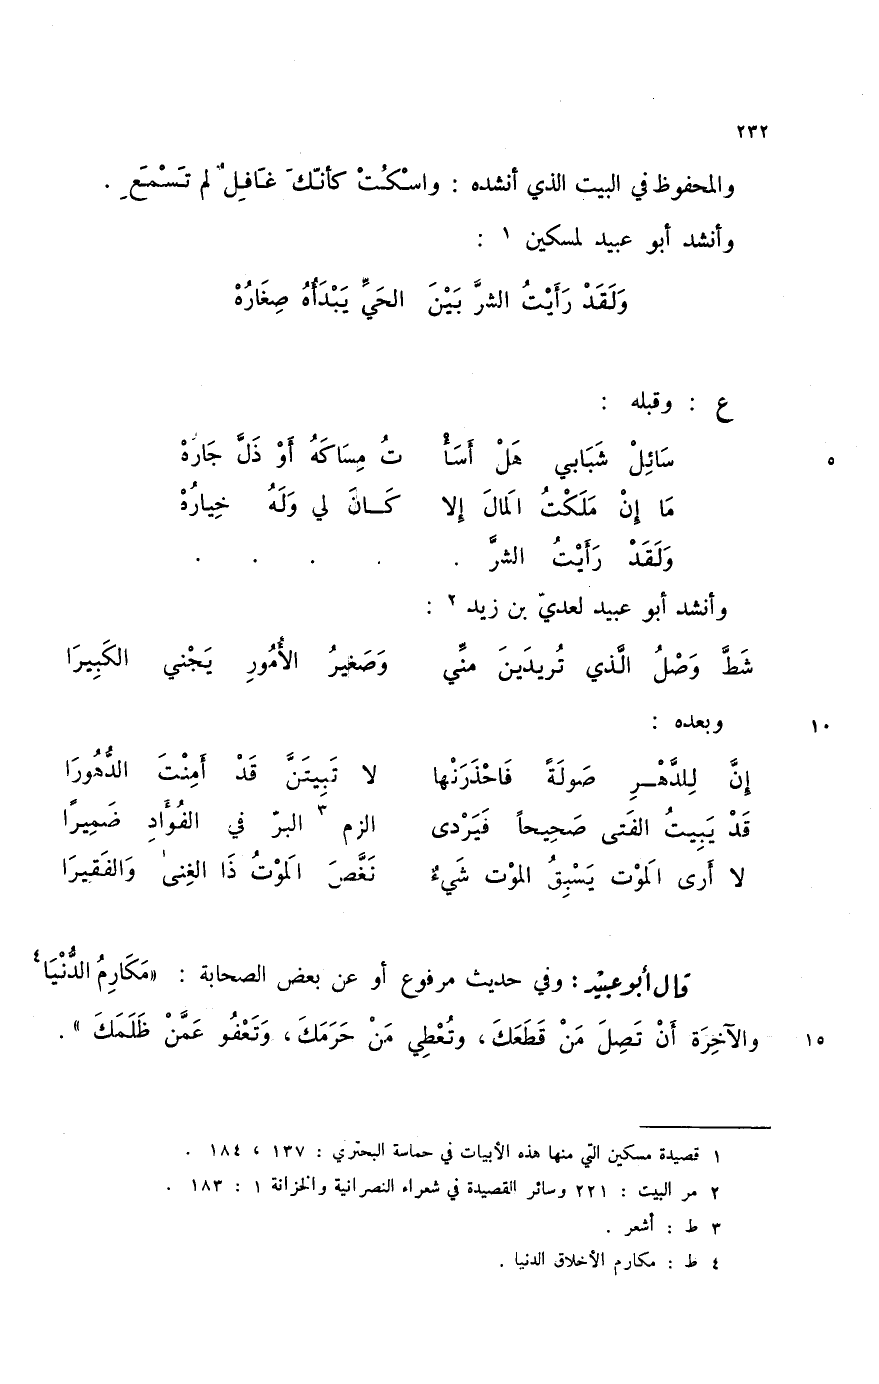 ٢٣٢
والمحفوظ في البيت الذي أنشده : واسْكُتْ كأنّكَ غَافِلٌ لم تَسْمَعِ .
وأنشد أبو عبيد لمسكين ١ :
وَلَقَدْ رَأَيْتُ الشرَّ بَيْنَ الحَيِّ يَبْدَأُهُ صِغَارُهْ
ع : وقبله :
سَائِلْ شَبَابي هَلْ أَسَأْ تُ مِسَاكَهُ أَوْ ذَلَّ جَارُهْ ٥
مَا إِنْ مَلَكْتُ المَالَ إلا كَـانَ لي وَلَهُ خِيارُهْ
وَلَقَدْ رَأَيْتُ الشرَّ . . . . .
وأنشد أبو عبيد لعديّ بن زيد ٢ :
شَطَّ وَصْلُ الَّذي تُرِيدَينَ منِّي وَصَغيرُ الأُمُورِ يَجْني الكَبِيرَا
وبعده : ١٠
إنَّ لِلدَّهْـرِ صَولَةً فَاحْذَرَنْها لا تَبِيتَنَّ قَدْ أَمِنْتَ الدُّهُورَا
قَدْ يَبِيتُ الفَتى صَحِيحاً فَيَرْدى الزم ٣ البرّ في الفُؤَادِ ضَمِيرًا
لا أَرى المَوْت يَسْبِقُ الموْت شَيءٌ نَغَّصَ المَوْتُ ذَا الغِنىٰ وَالفَقيرَا
قال أبو عبيد : وفي حديث مرفوع أو عن بعض الصحابة : «مَكَارِمُ الدُّنْيَا ٤
والآخِرَة أَنْ تَصِلَ مَنْ قَطَعَكَ ، وتُعْطِي مَنْ حَرَمَكَ ، وَتَعْفُو عَمَّنْ ظَلَمَكَ » . ١٥
١ قصيدة مسكين التي منها هذه الأبيات في حماسة البحتري : ١٣٧ ، ١٨٤ .
٢ مر البيت : ٢٢١ وسائر القصيدة في شعراء النصرانية والخزانة ١ : ١٨٣ .
٣ ط : أشعر .
٤ ط : مكارم الأخلاق الدنيا .